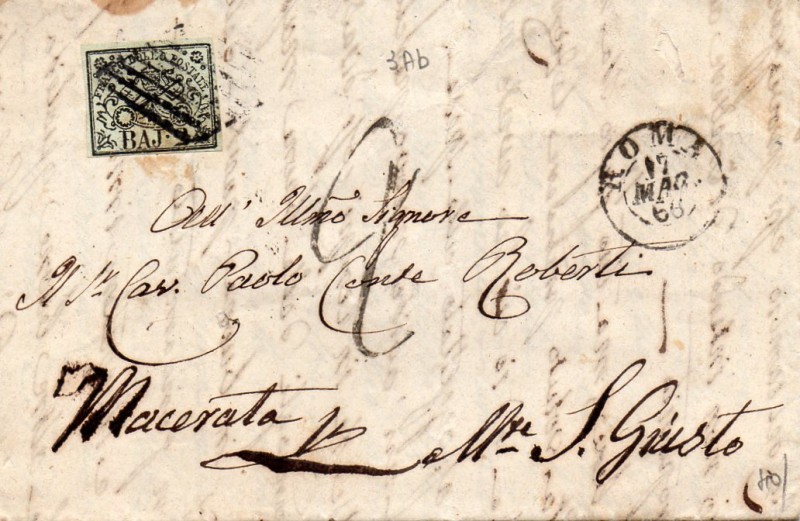 3Ab
FRANCO BOLLO POSTALE
BAJ.
ROMA
17
MAG.
66
All' Illmo Signore
Il Sr. Cav. Paolo Conte Roberti
Macerata pr Mte S. Giusto